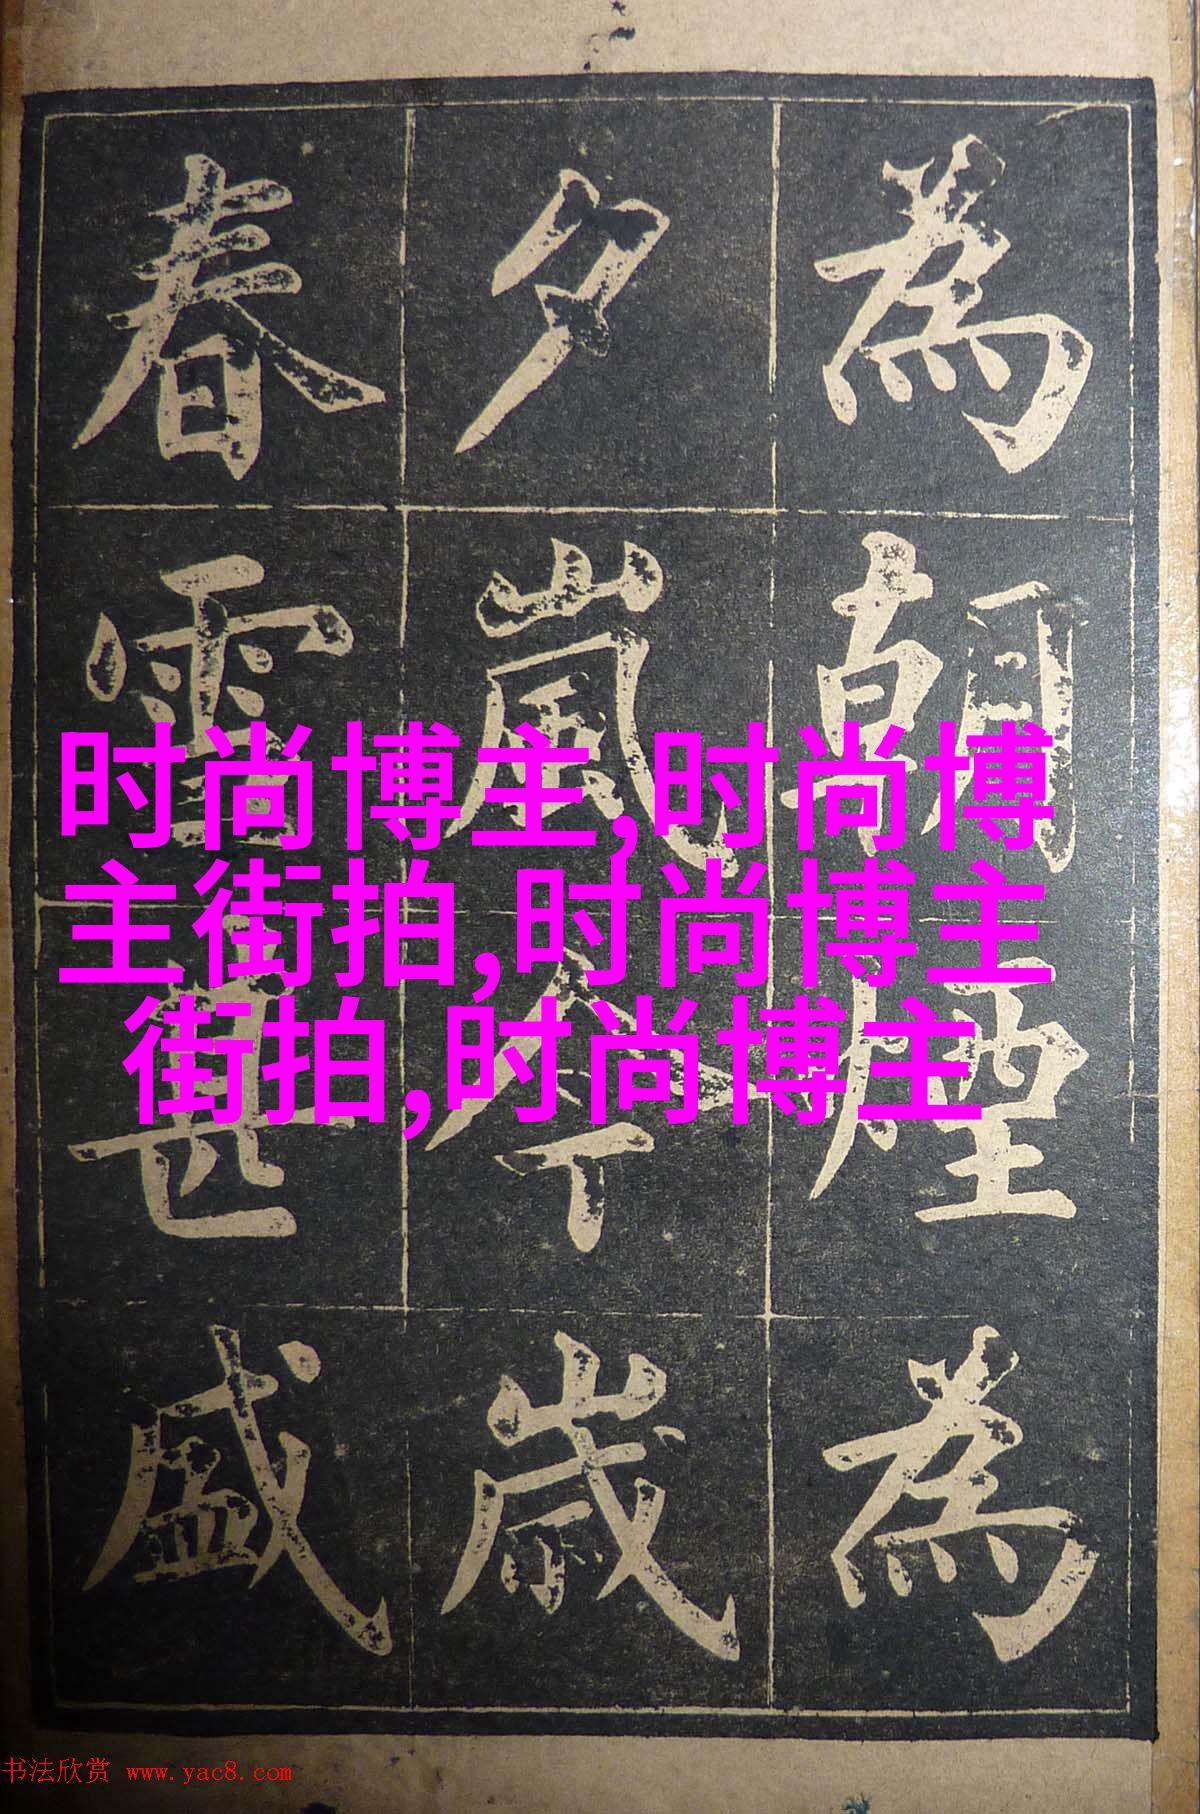 為朝煙為
夕嵐今歳
春雪甚盛
时尚博主,时尚博
主街拍,时尚博主
街拍,时尚博主
书法欣赏 www.yac8.com